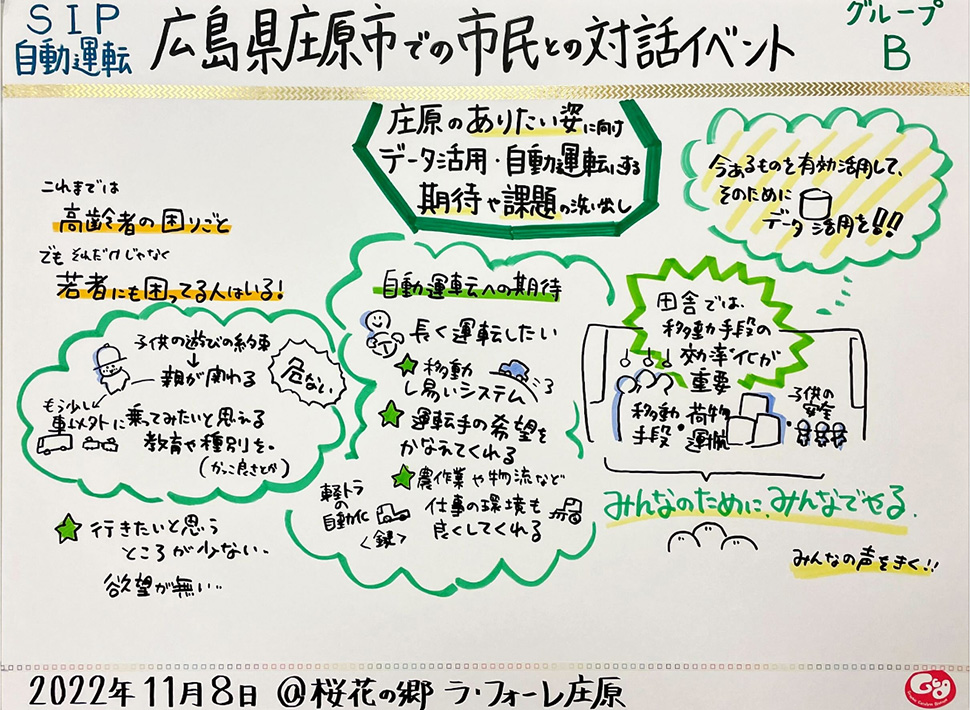 SIP
自動運転
広島県庄原市での市民との対話イベント
グループ
B
庄原のありたい姿に向け
データ活用・自動運転にする
期待や課題の洗い出し
今あるものを有効活用して、
そのために
データ活用を!!
これまでは
高齢者の困りごと
でも それだけじゃなく
若者にも困ってる人はいる!
子供の遊びの約束
↓
親が関わる
危ない
もう少し
車以外に乗ってみたいと思える
教育や種別を。
(かっこ良さとか)
行きたいと思う
ところが少ない、
欲望が無い…
自動運転への期待
長く運転したい
移動
し易いシステム
運転手の希望を
かなえてくれる
農作業や物流など
仕事の環境も
良くしてくれる
軽トラ
の
自動化
<鍵>
田舎では、
移動手段の
効率化が
重要
移動
手段・
荷物
運搬
・子供の
安全
みんなのために、みんなでやる。
みんなの声をきく!!
2022年11月8日 @桜花の郷 ラ・フォーレ庄原